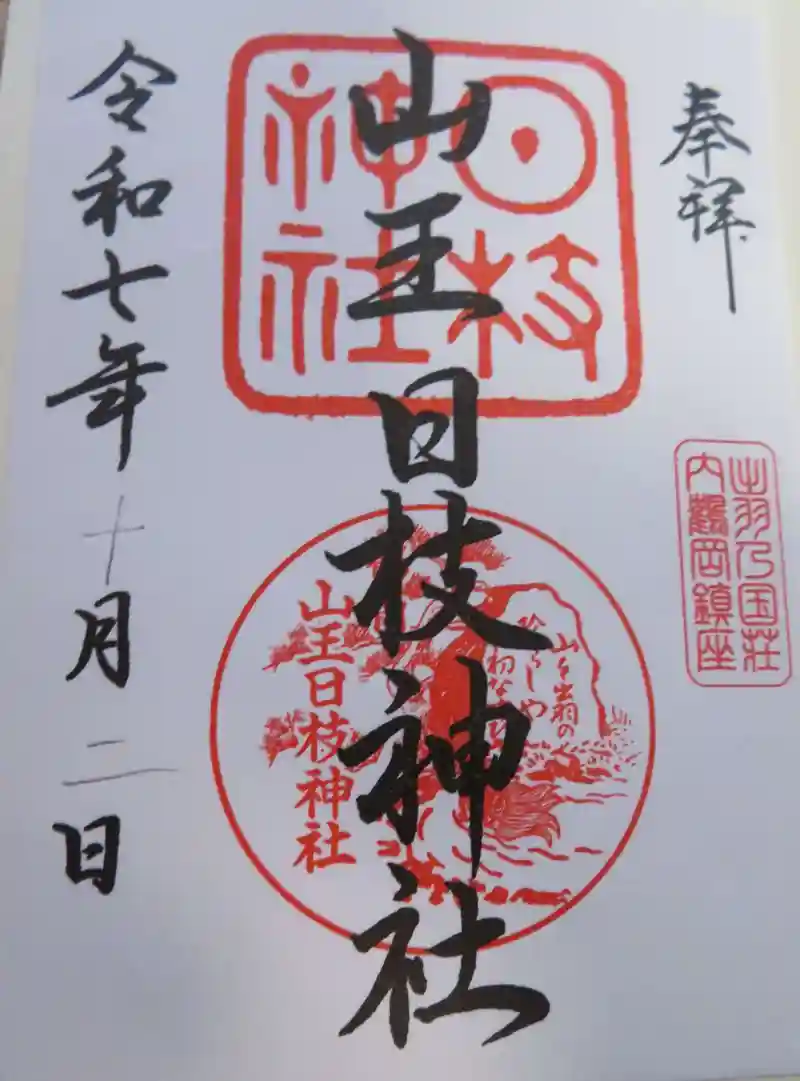 奉拝
出羽乃国荘
内鶴岡鎮座
日枝
神社
山王日枝神社
山を出羽の
山王日枝神社
令和七年十月二日